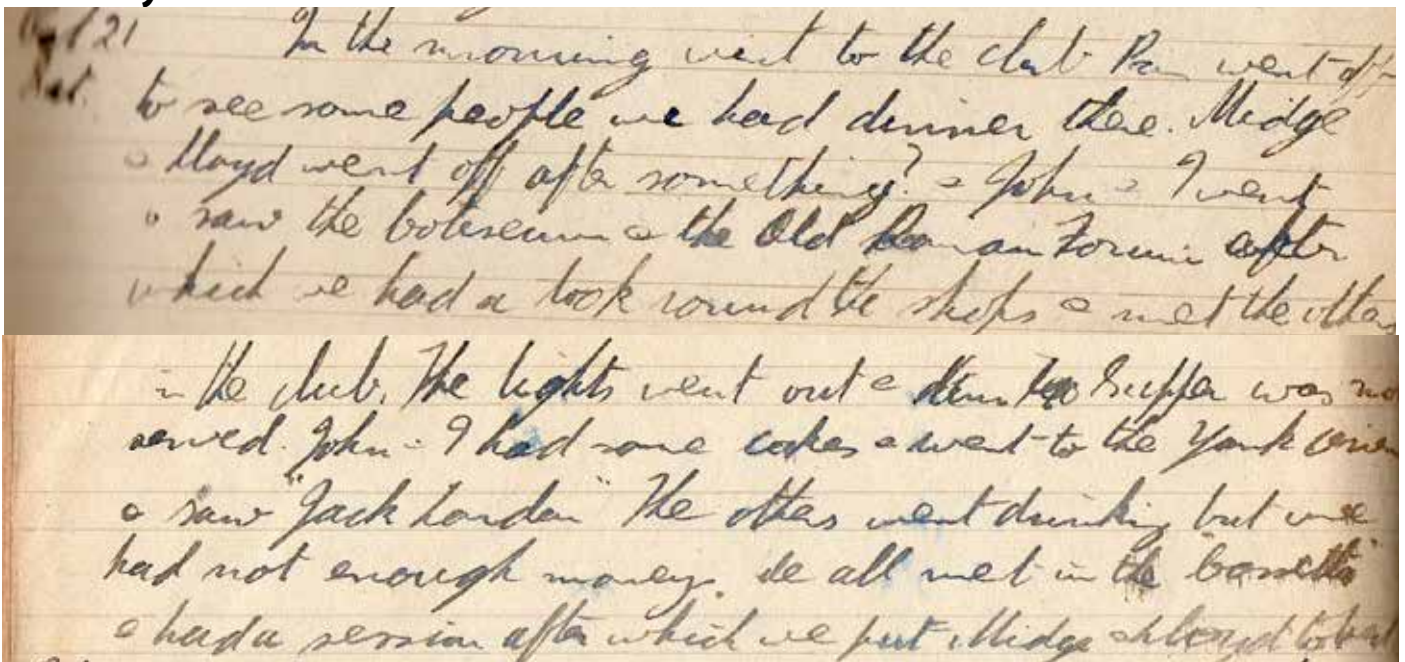 21 In the morning went to the club Pam went off
to see some people we had dinner there. Midge
& Lloyd went off after something? & John & I went
& saw the Coliseum & the Old Roman Forum after
which we had a look round the shops & met the others
in the club. The lights went out & Supper was not
served. John & I had some cakes & went to the Yank
& saw "Jack London" The others went drinking but we
had not enough money. We all met in the
& had a session after which we put Midge & Lloyd to bed